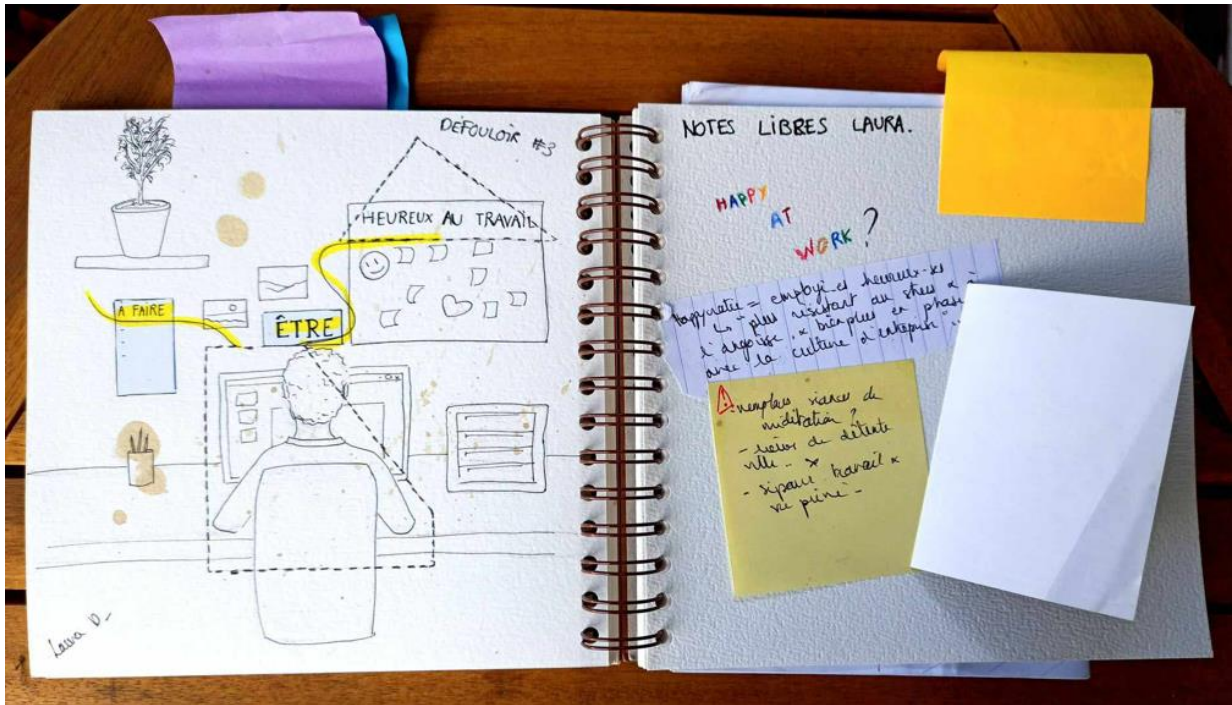 DEFOULOIR #3
HEUREUX AU TRAVAIL
A FAIRE
ÊTRE
Laura D_
NOTES LIBRES LAURA.
HAPPY
AT
WORK ?
= employé.es heureux.ses
↳ "plus résistant au stress & à
l'angoisse & bien plus en phase
avec la culture d'entreprise"
séances de
méditation ?
- de détente
ville - *
- séparer travail &
vie privée -